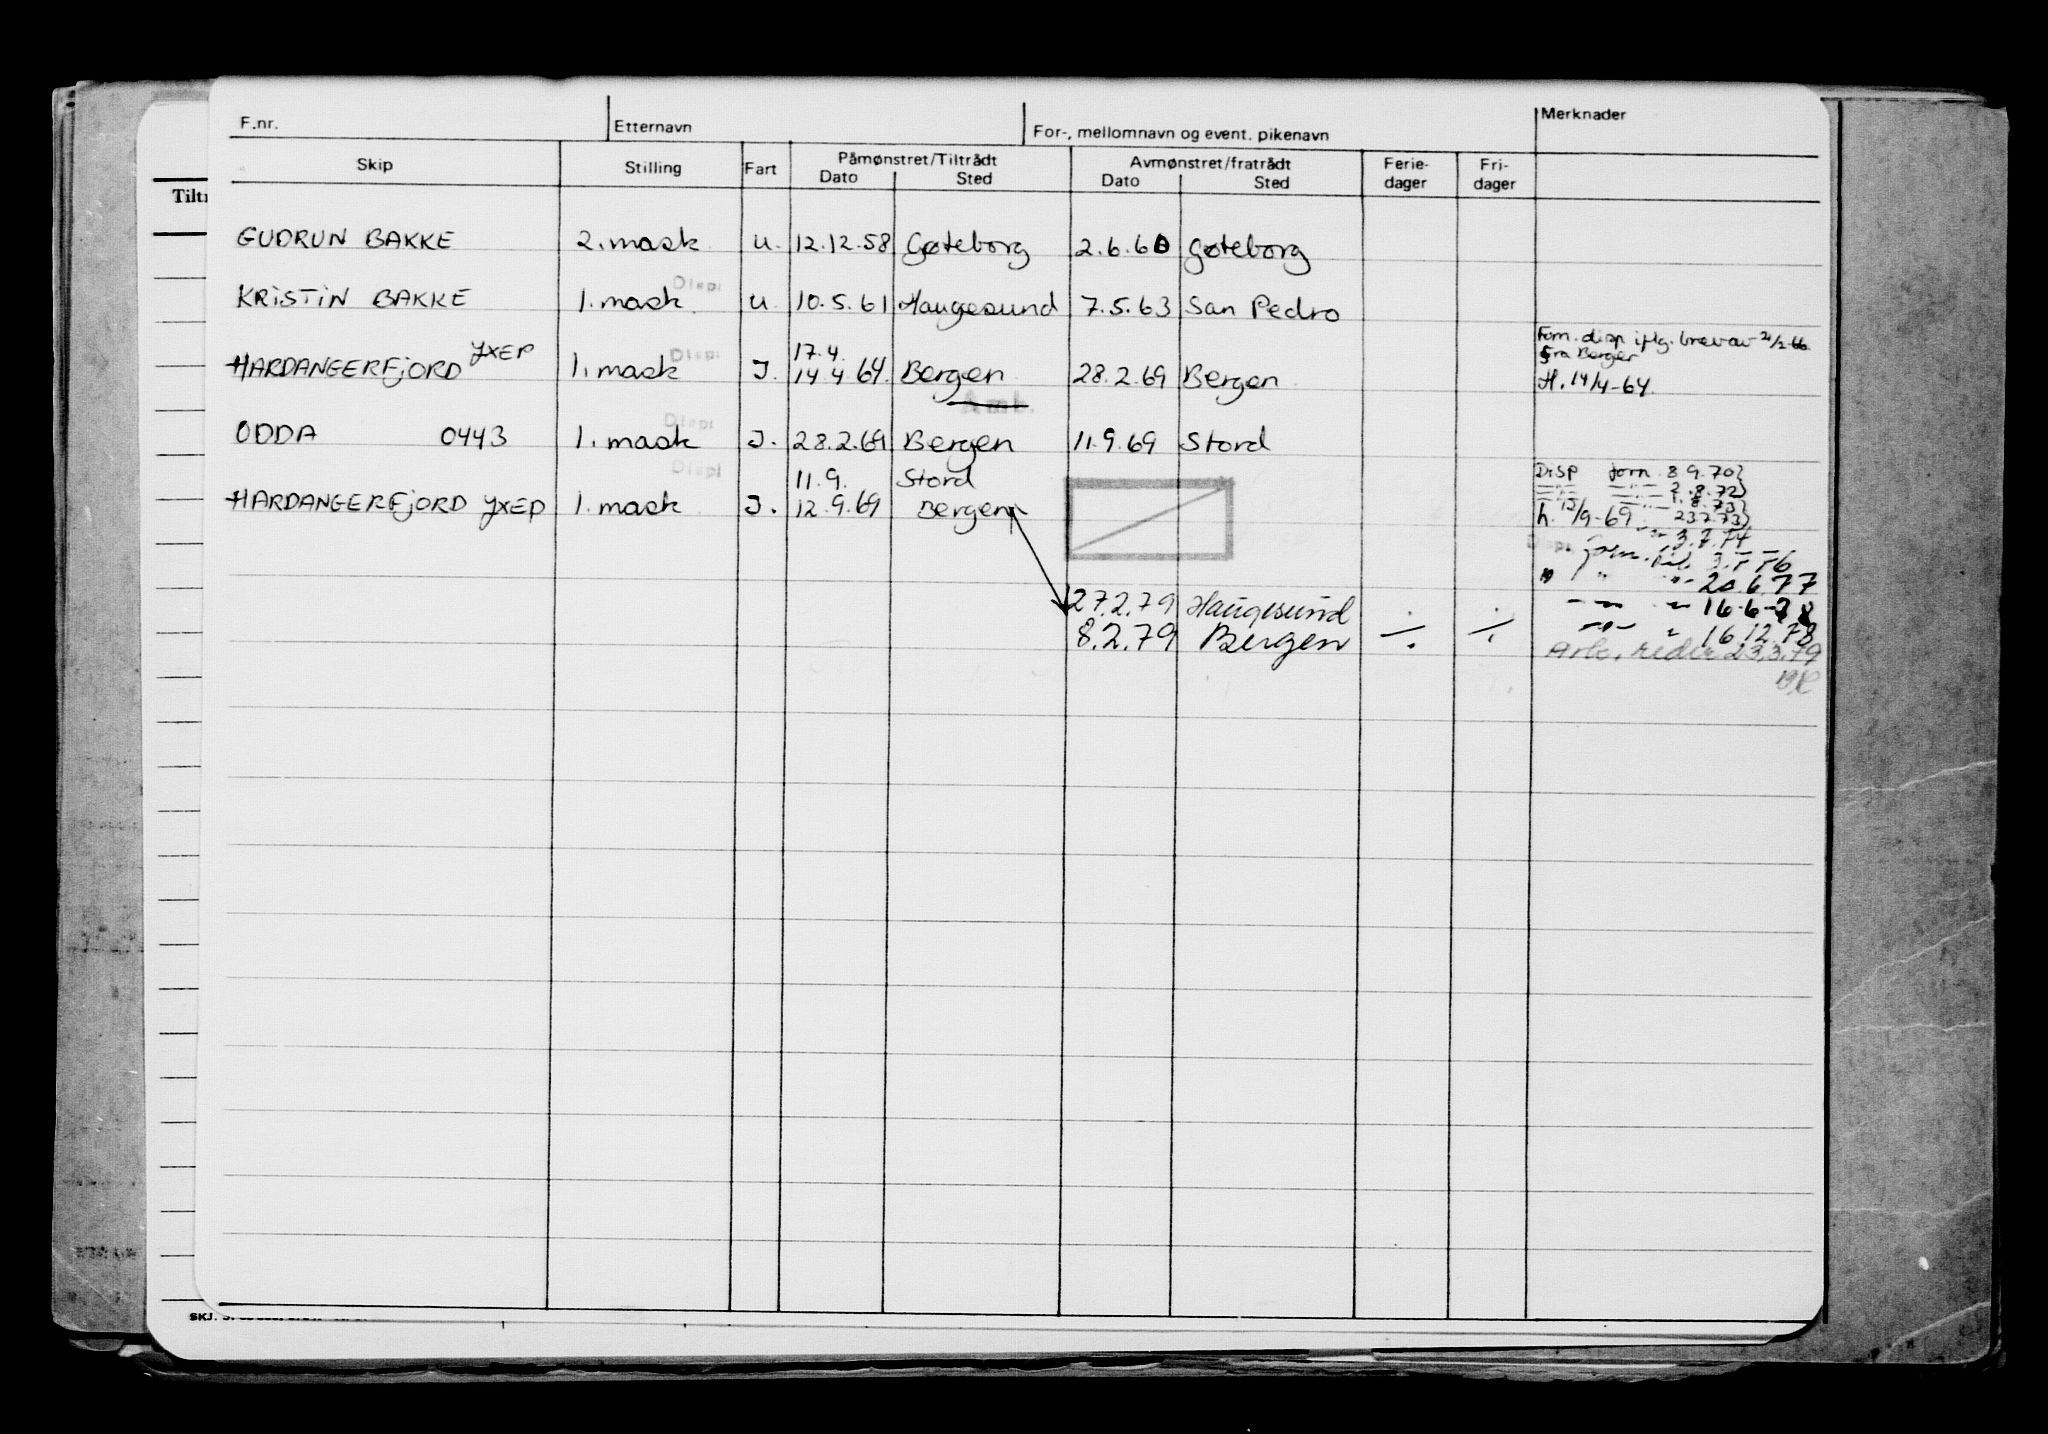 F.nr. Etternavn For-, mellomnavn og event. pikenavn Merknader
Skip Stilling Fart Påmønstret/Tiltrådt Avmønstret/fratrådt Ferie- Fri-
Dato Sted Dato Sted dager dager
Tiltr
GUDRUN BAKKE 2. mask. U. 12.12.58 Gøteborg 2.6.60 Gøteborg
Displ
KRISTIN BAKKE 1. mask. U. 10.5.61 Haugesund 7.5.63 San Pedro
Forn. disp iflg. brev av 21/2-66
JXEP Displ 17.4. fra Berger
HARDANGERFJORD 1. mask J. 14.4.64. Bergen 28.2.69 Bergen H. 14/4-64.
Amb.
Displ
ODDA 0443 1. mask J. 28.2.69 Bergen 11.9.69 Stord
Displ 11.9. Stord DISP forn. 8.9.70}
—"— —"— 2.8.72}
1.8.73}
HARDANGERFJORD JXEP 1. mask J. 12.9.69 Bergen h. 12/9-69 23.7.73}
3.7.74
Displ.
" " 20.6.77
27.2.79 Haugesund —"— " 16.6.78
8.2.79 Bergen ÷ ÷ —"— " 16.12.78
23.3.79